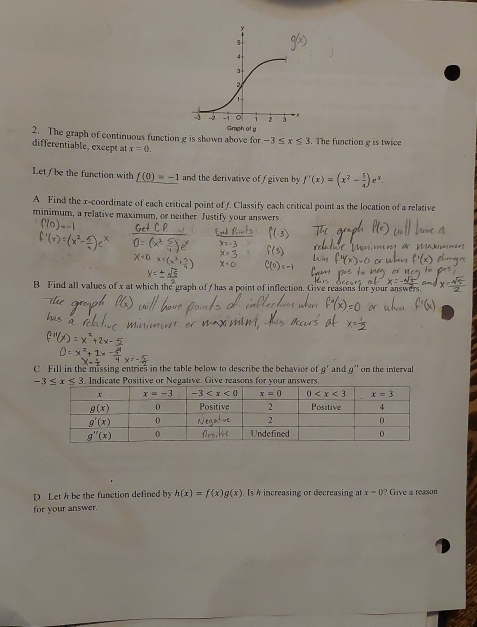 y
g(x)
5
4
3
2
1
-3 -2 -1 O 1 2 3 x
Graph of g
2. The graph of continuous function g is shown above for −3 ≤ x ≤ 3. The function g is twice
differentiable, except at x = 0.
Let f be the function with f(0) = −1 and the derivative of f given by f'(x) = (x² − 5/4)eˣ.
A Find the x-coordinate of each critical point of f. Classify each critical point as the location of a relative
minimum, a relative maximum, or neither. Justify your answers.
f(0)=-1
f'(x)=(x²-5/4)eˣ
Get C.P
0=(x²-5/4)eˣ
x=0 x=(x²-5/4)
x=±√5/2
End Points
x=-3
x=3
x=0
f(-3)
f(3)
f(0)=-1
The graph f(x) will have a
relative minimum or maximum
when f'(x)=0 or when f'(x) changes
from pos to neg or neg to pos,
this occurs at x=-√5/2 and x=√5/2
B Find all values of x at which the graph of f has a point of inflection. Give reasons for your answers.
The graph f(x) will have points of inflection when f''(x)=0 or when f'(x)
has a relative minimum or maximum, this occurs at x=1/2
f''(x)=x²+2x-5/4
0=x²+2x-5/4
x=1/2 x=-5/2
C Fill in the missing entries in the table below to describe the behavior of g' and g'' on the interval
−3 ≤ x ≤ 3. Indicate Positive or Negative. Give reasons for your answers.
x x = −3 −3 < x < 0 x = 0 0 < x < 3 x = 3
g(x) 0 Positive 2 Positive 4
g'(x) 0 Negative 2 0
g''(x) 0 Positive Undefined 0
D Let h be the function defined by h(x) = f(x)g(x). Is h increasing or decreasing at x = 0? Give a reason
for your answer.